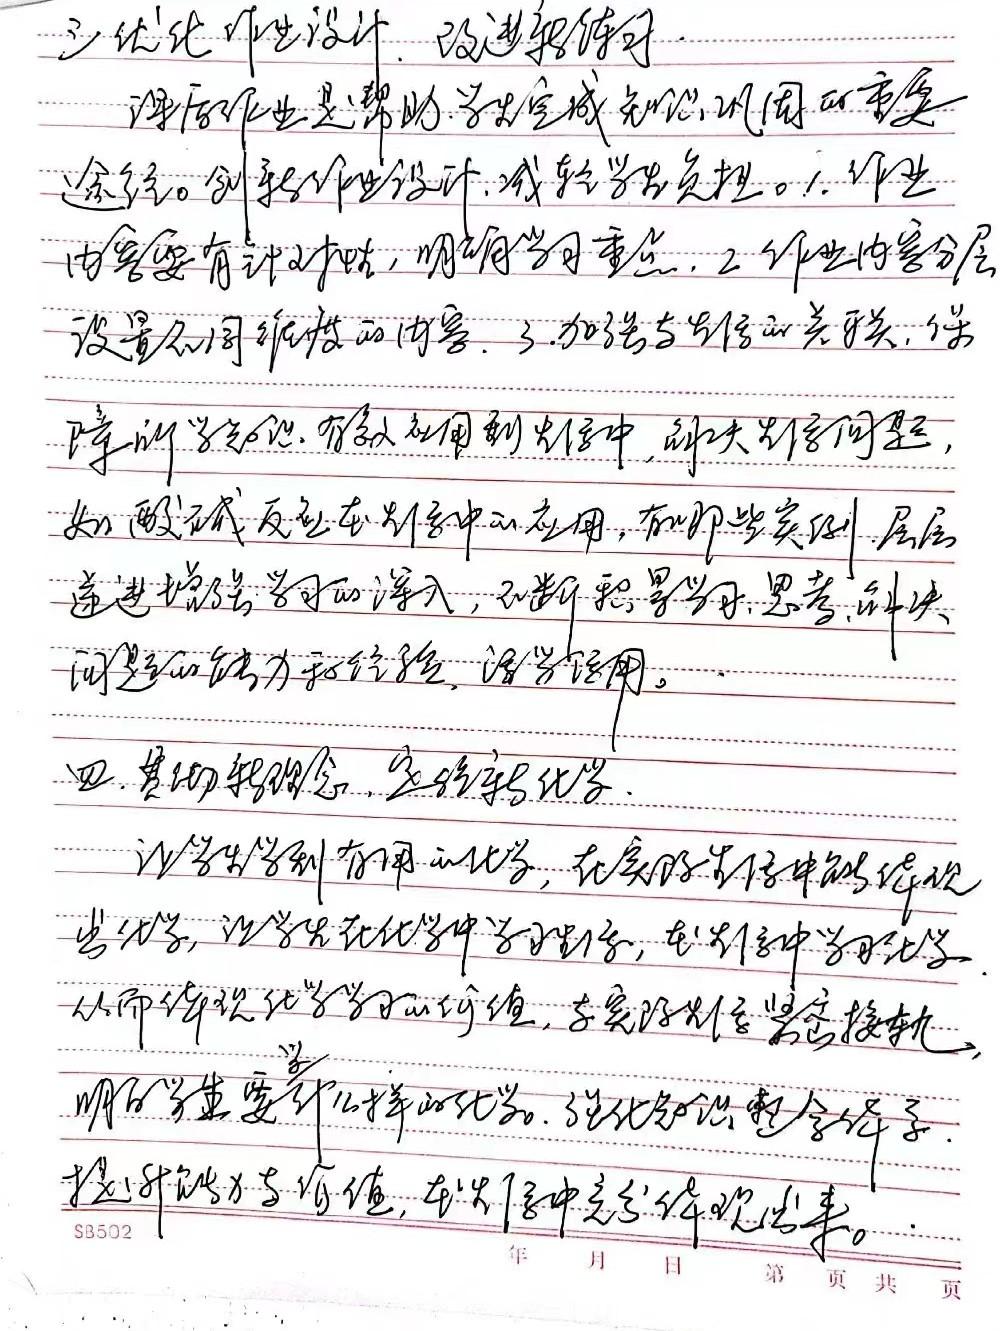 三、优化作业设计，改进新练习.
课后作业是帮助学生完成知识巩固的重要
途径。创新作业设计，减轻学生负担。1.作业
内容要有针对性，明确学习重点. 2 作业内容分层
设置不同维度的内容. 3.加强与生活的关联，保
障所学知识有效应用到生活中，解决生活问题，
如酸碱反应在生活中的应用，有哪些实例.层层
递进增强学习的深入，不断积累学习、思考、解决
问题的能力和经验，活学活用。
四.贯彻新理念，定位新化学.
让学生学到有用的化学，在实际生活中能体现
出化学，让学生在化学中学习生活，在生活中学习化学.
从而体现化学学习的价值，与实际生活紧密接轨，
学
明白学生要什么样的化学。强化知识整合体系.
提升能力与价值，在生活中充分体现出来。
SB502
年 月 日 第 页 共 页